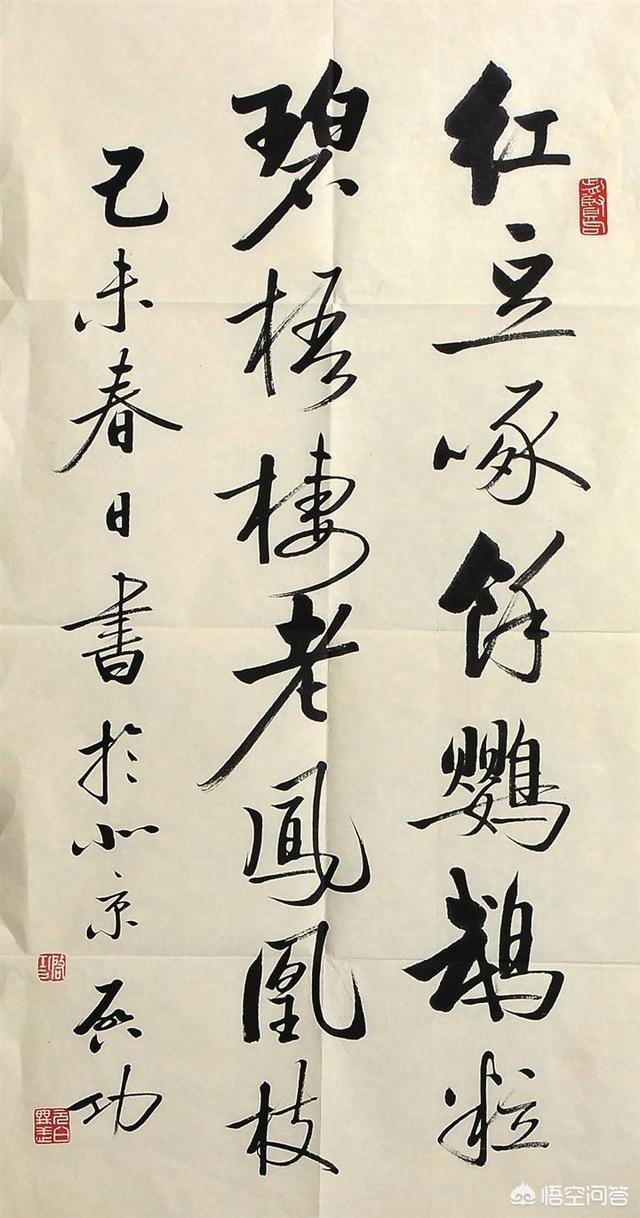 红豆啄餘鸚鵡粒
碧梧棲老鳳凰枝
己未春日書於北京 啟功
悟空问答